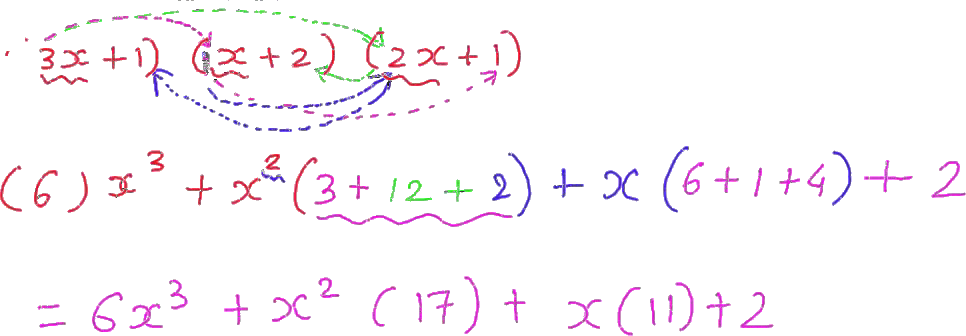 3x + 1) (x + 2) (2x + 1)
(6) x³ + x² (3 + 12 + 2) + x (6 + 1 + 4) + 2
= 6x³ + x² (17) + x (11) + 2